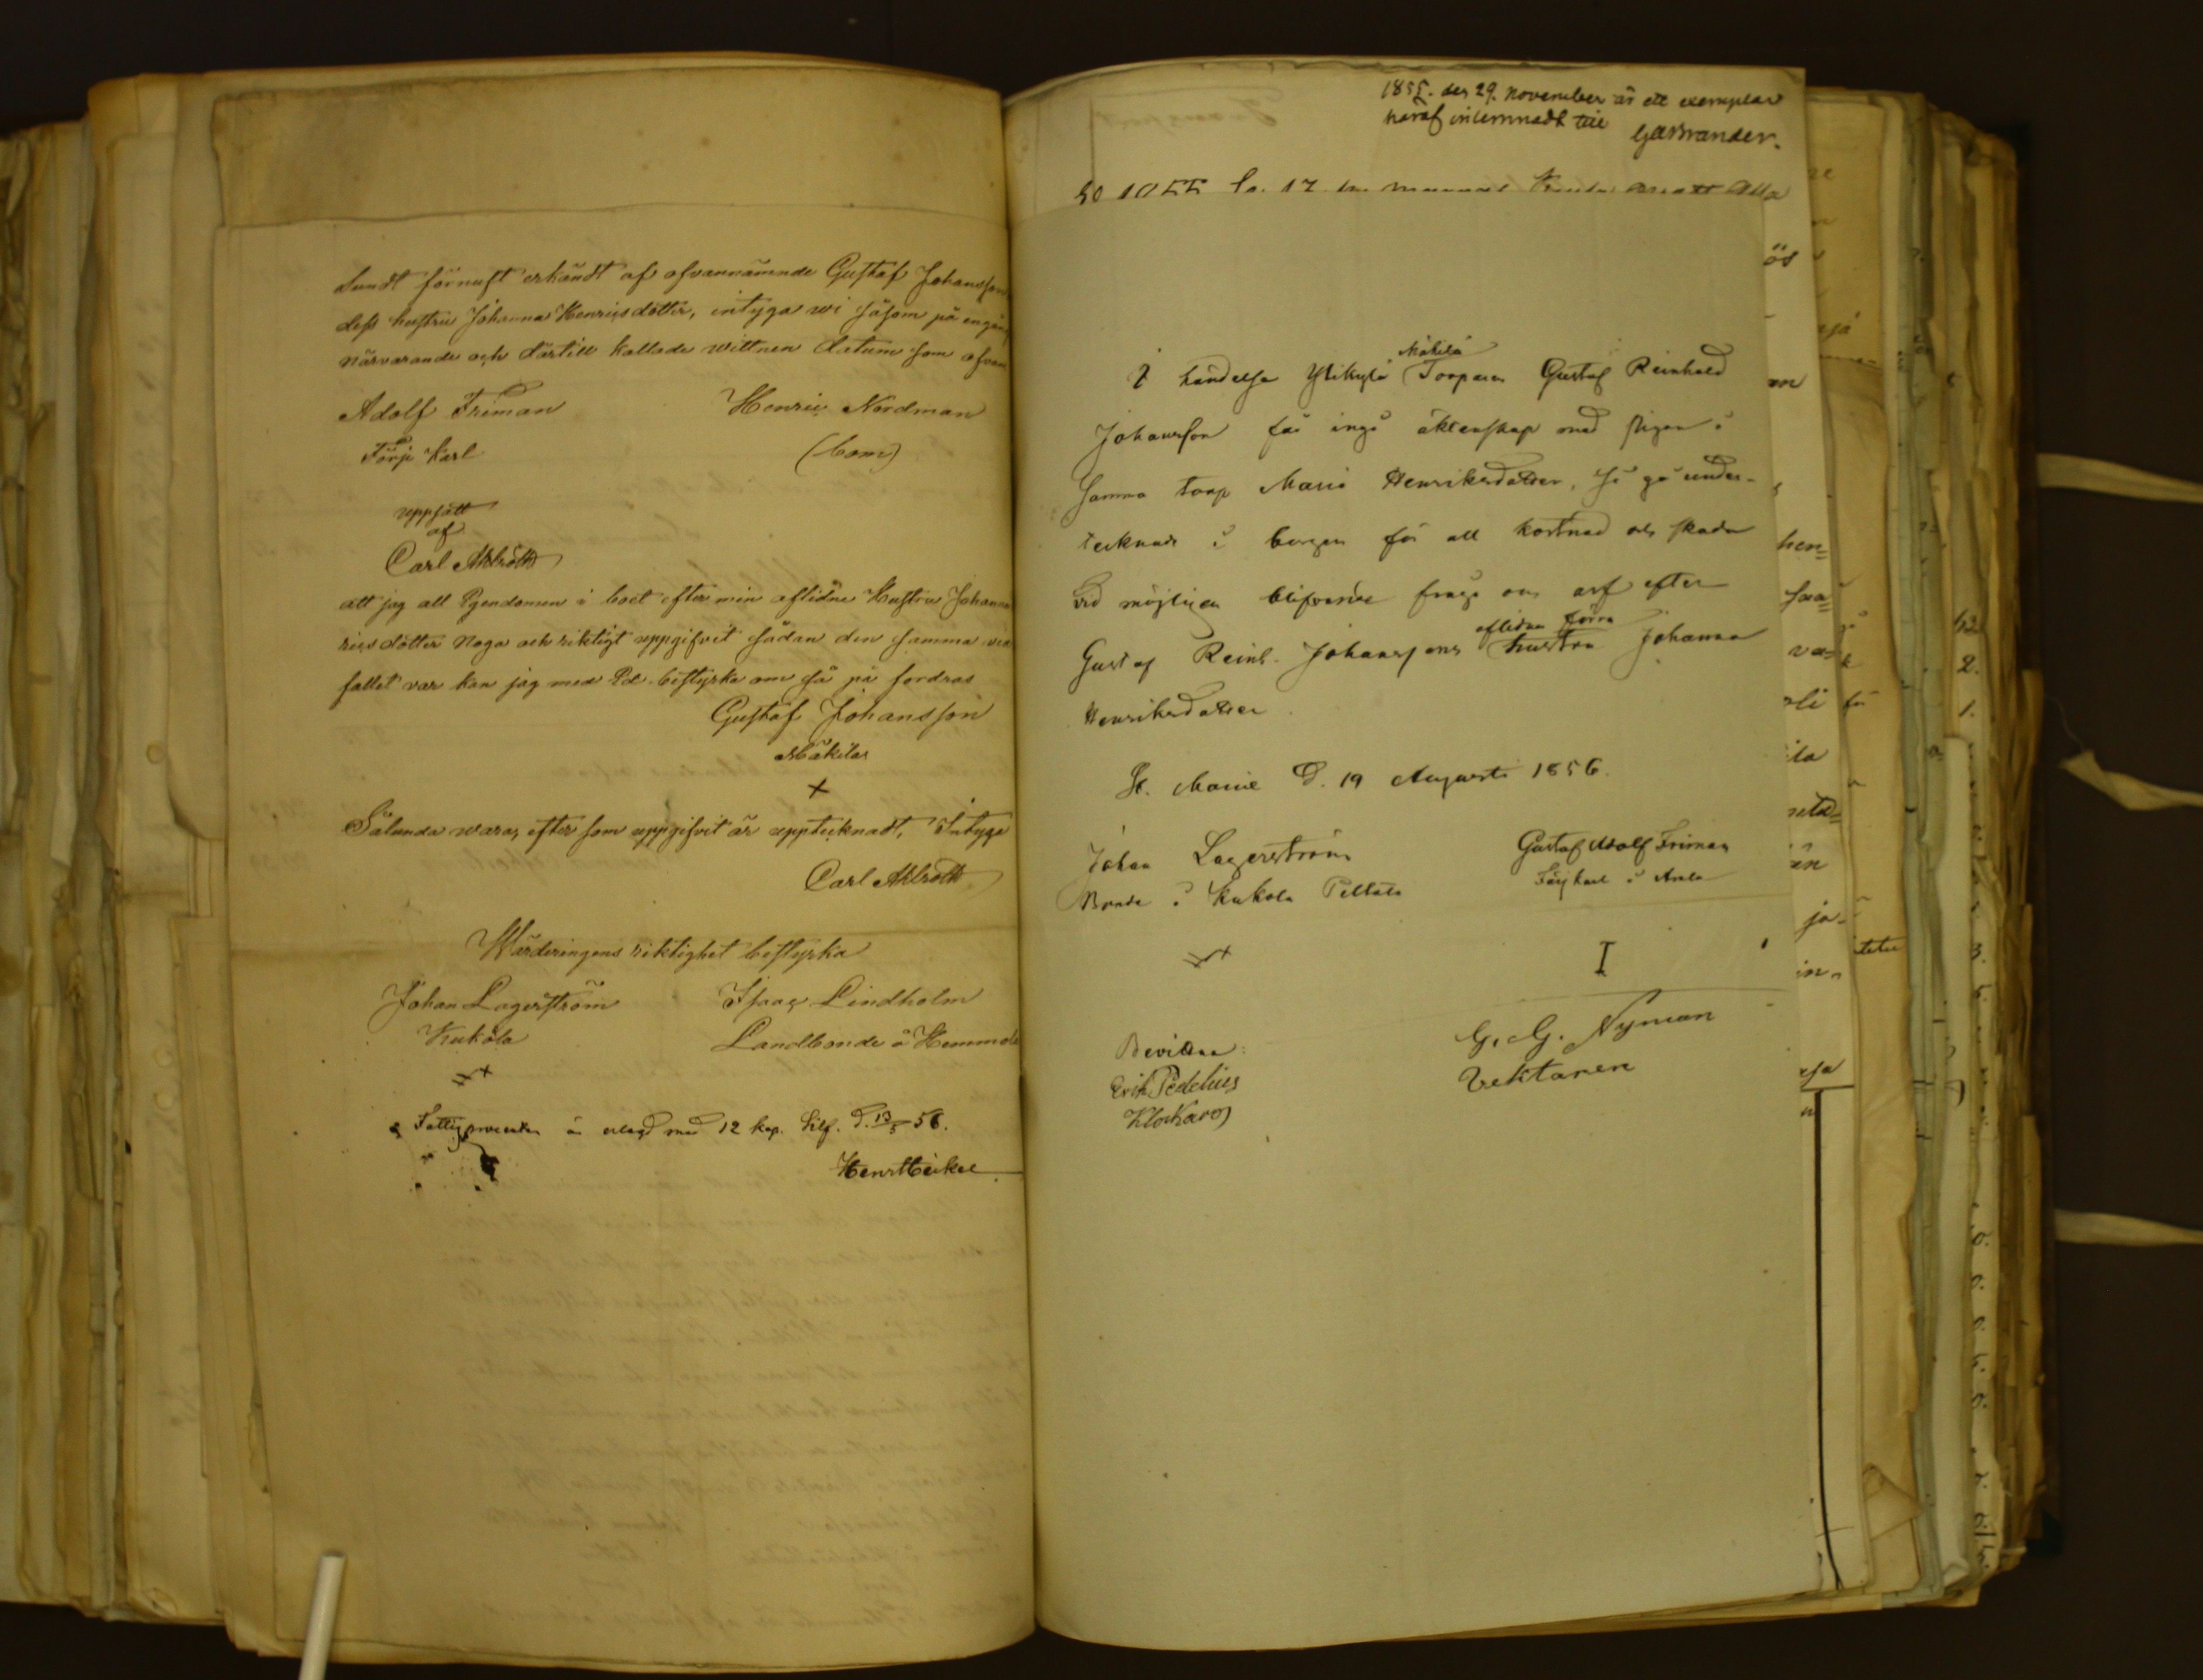 Sundt förnuft erkändt af ofvannämnde Gustaf Johansson
dess hustru Johanna Henricsdotter, intyga wi såsom på engång
närvarande och därtill kallade wittnen datum som ofvan
Adolf Friman Henric Nordman
Färje Karl (bom)
uppsatt
af
Carl Ahlroth
att jag all Egendomen i boet efter min aflidne Hustru Johanna
ricsdotter noga och riktigt uppgifvit sådan den samma vid
fallet var kan jag med Ed bestyrka om så på fordras
Gustaf Johansson
Mäkilä
+
Sålunda wara, efter som uppgifvit är upptecknadt, Intyga
Carl Ahlroth
Wärderingens riktighet bestyrka
Johan Lagerström Isaac Lindholm
Kukola Landbonde å Hemmola
Fattigprocenten är erlagd med 12 kop. Silf. d. 13/5 56.
Henr Heikel
1855. den 29. November är ett exemplar
häraf inlemnadt till
GABrander.
I händelse Ylikylä Mäkilä Torparen Gustaf Reinhold
Johansson får ingå äktenskap med pigan i
samma torp Maria Henriksdotter, så gå under-
tecknade i borgen för all kostnad och skada
vid möjligen blifvande fråga om arf efter
Gustaf Reinh. Johanssons aflidna förra hustru Johanna
Henriksdotter
St. Marie d. 19 Augusti 1856.
Johan Lagerström Gustaf Adolf Friman
Bonde i Kukola Peltola Färjkarl i
I
Bevittna: G. G. Nyman
Erik Pedelius Vektaren
Klockare